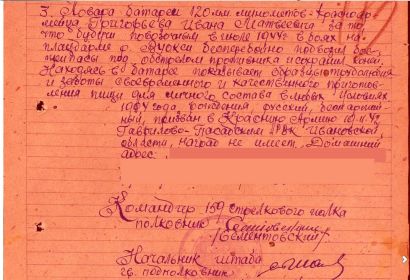 3. Повара батареи 120мм минометов - красноар-
мейца Григорьева Ивана Матвеевича за то
что будучи повозочным в июле 1944г в боях на
плацдарме р. бесперебойно подвозил бое-
припасы под обстрелом противника и сохранил коней.
Находясь в батарее показывает образцы
и заботы своевременного и качественного приготов-
ления пищи для личного состава в любых условиях
рождения, русский, беспартий-
ный, призван в Красную Армию
Гаврилово-Посадским РВК Ивановской
области, наград не имеет. Домашний
адрес:
Командир 159 стрелкового полка
полковник
Начальник штаба
гв. подполковник